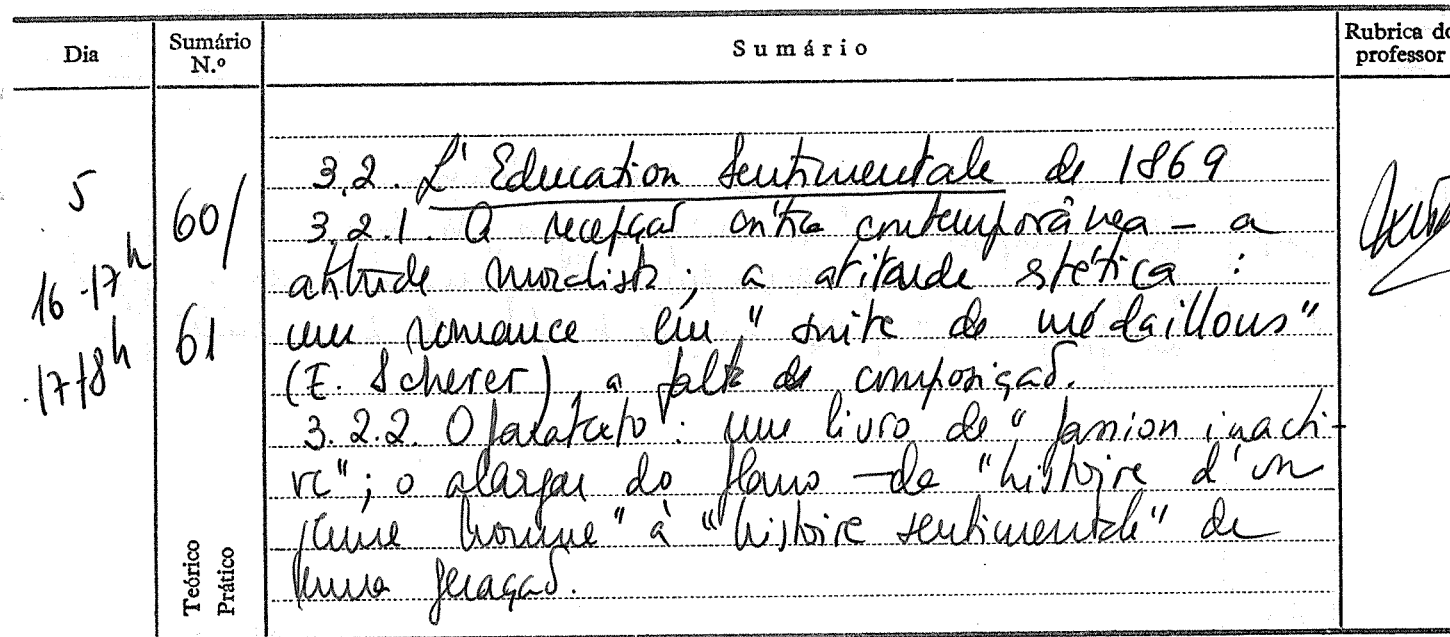 Dia
Sumário
N.º
Sumário
Rubrica do
professor
5
16-17h
17-18h
60/
61
Teórico
Prático
3.2. L'Education Sentimentale de 1869
3.2.1. A recepção crítica contemporânea - a
atitude moralista; a atitude estética :
um romance em "suite de médaillons"
(E. Scherer) a falta de composição.
3.2.2. O paratexto : um livro de "passion inacti-
ve"; o alargar do plano - da "histoire d'un
jeune homme" à "histoire sentimentale" de
uma geração.